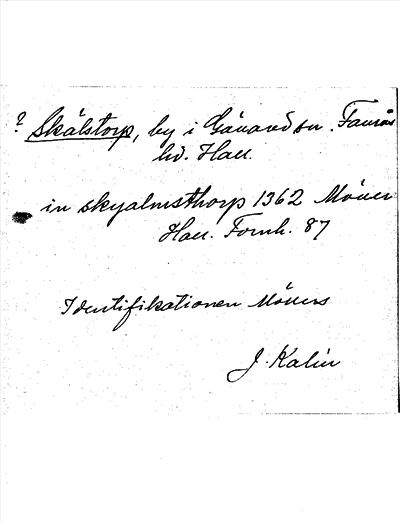 ? Skälstorp, by i Gånards sn. Faurås
hd. Hall.
in skyalmsthorp 1362 Möller
Hall. Fornh. 87
Identifikationen Möllers
J. Kalén